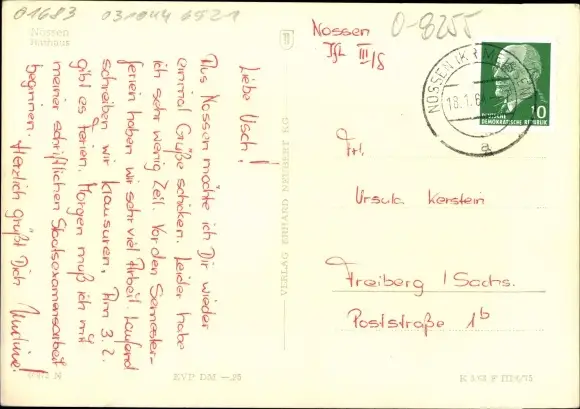 01683 031044 6521
0-8255
Nossen
Rathaus
Nossen
III/8
Liebe Usch!
Aus Nossen möchte ich Dir wieder
einmal Grüße schicken. Leider habe
ich sehr wenig Zeit. Vor den Semester-
ferien haben wir sehr viel Arbeit. Laufend
schreiben wir Klausuren. Am 3.2.
gibt es Ferien. Morgen muß ich mit
meiner schriftlichen Staatsexamensarbeit
beginnen. Herzlich grüßt Dich
NOSSEN
18.1.
a
10
DEUTSCHE
DEMOKRATISCHE REPUBLIK
Frl.
Ursula Kerstein
Freiberg / Sachs.
Poststraße 1b
EVP DM —,25